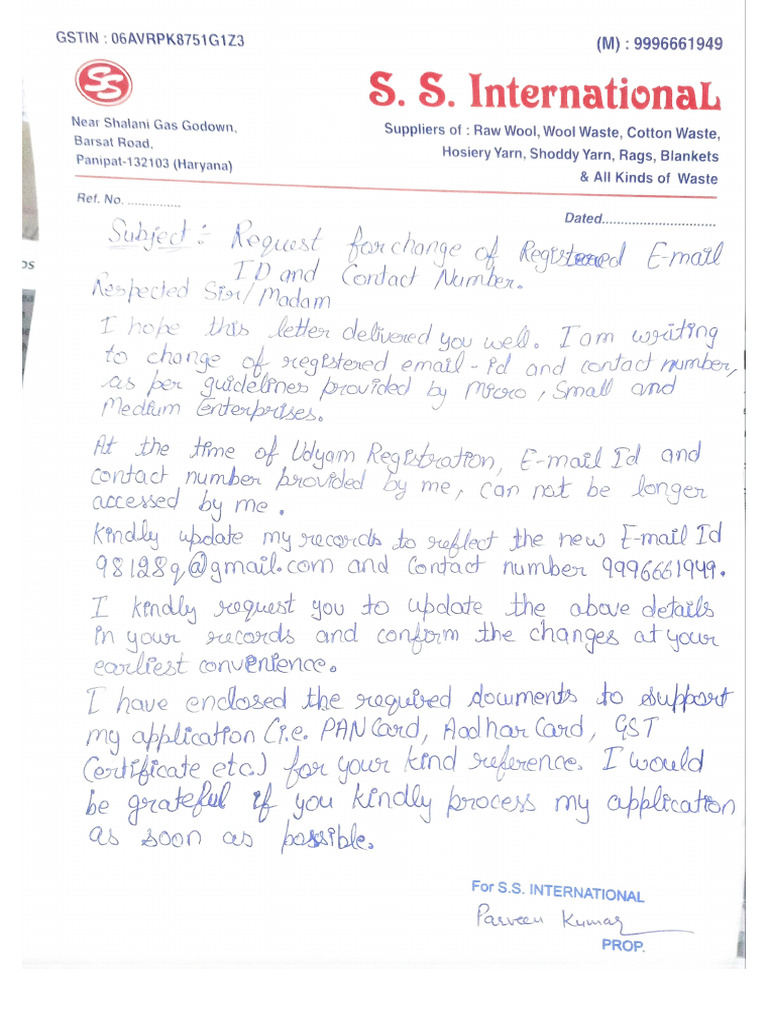 GSTIN : 06AVRPK8751G1Z3
(M) : 9996661949
SS
S. S. InternationaL
Near Shalani Gas Godown,
Barsat Road,
Panipat-132103 (Haryana)
Suppliers of : Raw Wool, Wool Waste, Cotton Waste,
Hosiery Yarn, Shoddy Yarn, Rags, Blankets
& All Kinds of Waste
Ref. No. ..............
Dated.............................
Subject : Request for change of Registered E-mail
ID and Contact Number.
Respected Sir/Madam
I hope this letter delivered you well. I am writing
to change of registered email-id and contact number,
as per guidelines provided by Micro, Small and
Medium Enterprises.
At the time of Udyam Registration, E-mail Id and
contact number provided by me, can not be longer
accessed by me.
Kindly update my records to reflect the new E-mail Id
98128q@gmail.com and Contact number 9996661949.
I kindly request you to update the above details
in your records and confirm the changes at your
earliest convenience.
I have enclosed the required documents to support
my application (i.e. PAN Card, Aadhar Card, GST
Certificate etc.) for your kind reference. I would
be grateful if you kindly process my application
as soon as possible.
For S.S. INTERNATIONAL
Parveen Kumar
PROP.